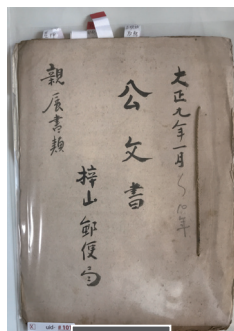 大正九年一月〜10年
公文書
親展書類
梓山郵便局